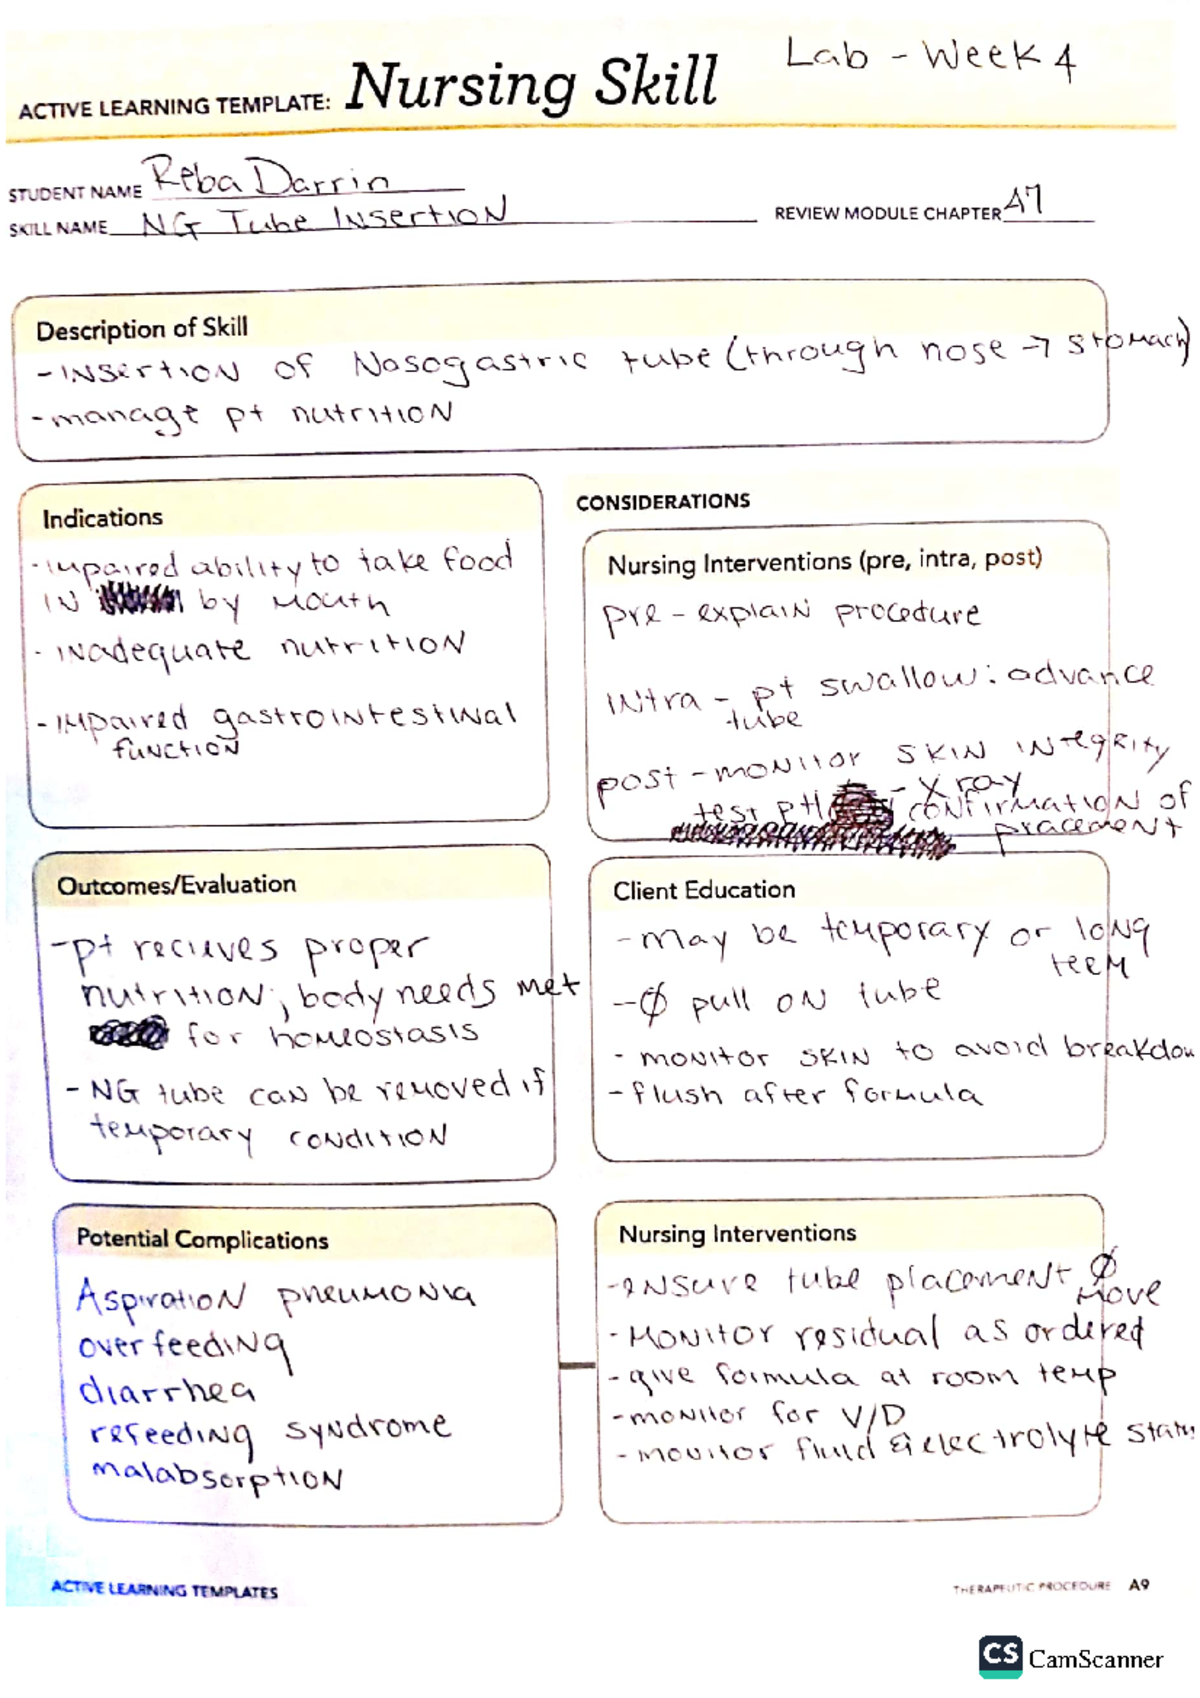 Lab - Week 4
ACTIVE LEARNING TEMPLATE: Nursing Skill
STUDENT NAME Reba Darrin
SKILL NAME NG Tube Insertion
REVIEW MODULE CHAPTER A7
Description of Skill
- Insertion of Nasogastric tube (through nose → stomach)
- manage pt nutrition
Indications
- impaired ability to take food
in by mouth
- inadequate nutrition
- impaired gastrointestinal
function
CONSIDERATIONS
Nursing Interventions (pre, intra, post)
pre - explain procedure
intra - pt swallow: advance
tube
post - monitor skin integrity
test pH - X ray
confirmation of
placement
Outcomes/Evaluation
- pt recieves proper
nutrition, body needs met
for homeostasis
- NG tube can be removed if
temporary condition
Client Education
- may be temporary or long
teem
- Ø pull on tube
- monitor skin to avoid breakdow
- flush after formula
Potential Complications
Aspiration pneumonia
over feeding
diarrhea
refeeding syndrome
malabsorption
Nursing Interventions
- ensure tube placement Ø
move
- Monitor residual as ordered
- give formula at room temp
- monitor for V/D
- monitor fluid & electrolyte status
ACTIVE LEARNING TEMPLATES
THERAPEUTIC PROCEDURE A9
CS CamScanner